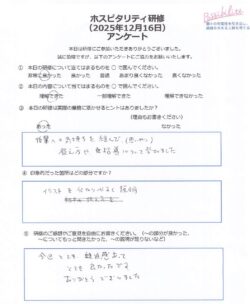 ホスピタリティ研修
（2025年12月16日）
アンケート
本日は研修にご参加いただきありがとうございました。
誠に恐縮ですが、以下のアンケートにご協力をお願いいたします。
① 本日の研修について当てはまるものを ○ で囲んでください。
非常に良かった 良かった 普通 あまり良くなかった 良くなかった
② 本日の内容について当てはまるものを ○ で囲んでください。
理解できた 一部理解できた 理解できなかった
③ 本日の研修は実際の業務に活かせるヒントはありましたか？
（理由もお書きください）
あった なかった
④ 印象的だった箇所はどの部分ですか？
イラスト を 分かりやすく 説明
⑤ 研修のご感想やご意見を自由にお書きください。（～の部分が良かった、
～についてもっと聞きたかった、～の説明が足りないなど）
とても
ありがとうございました